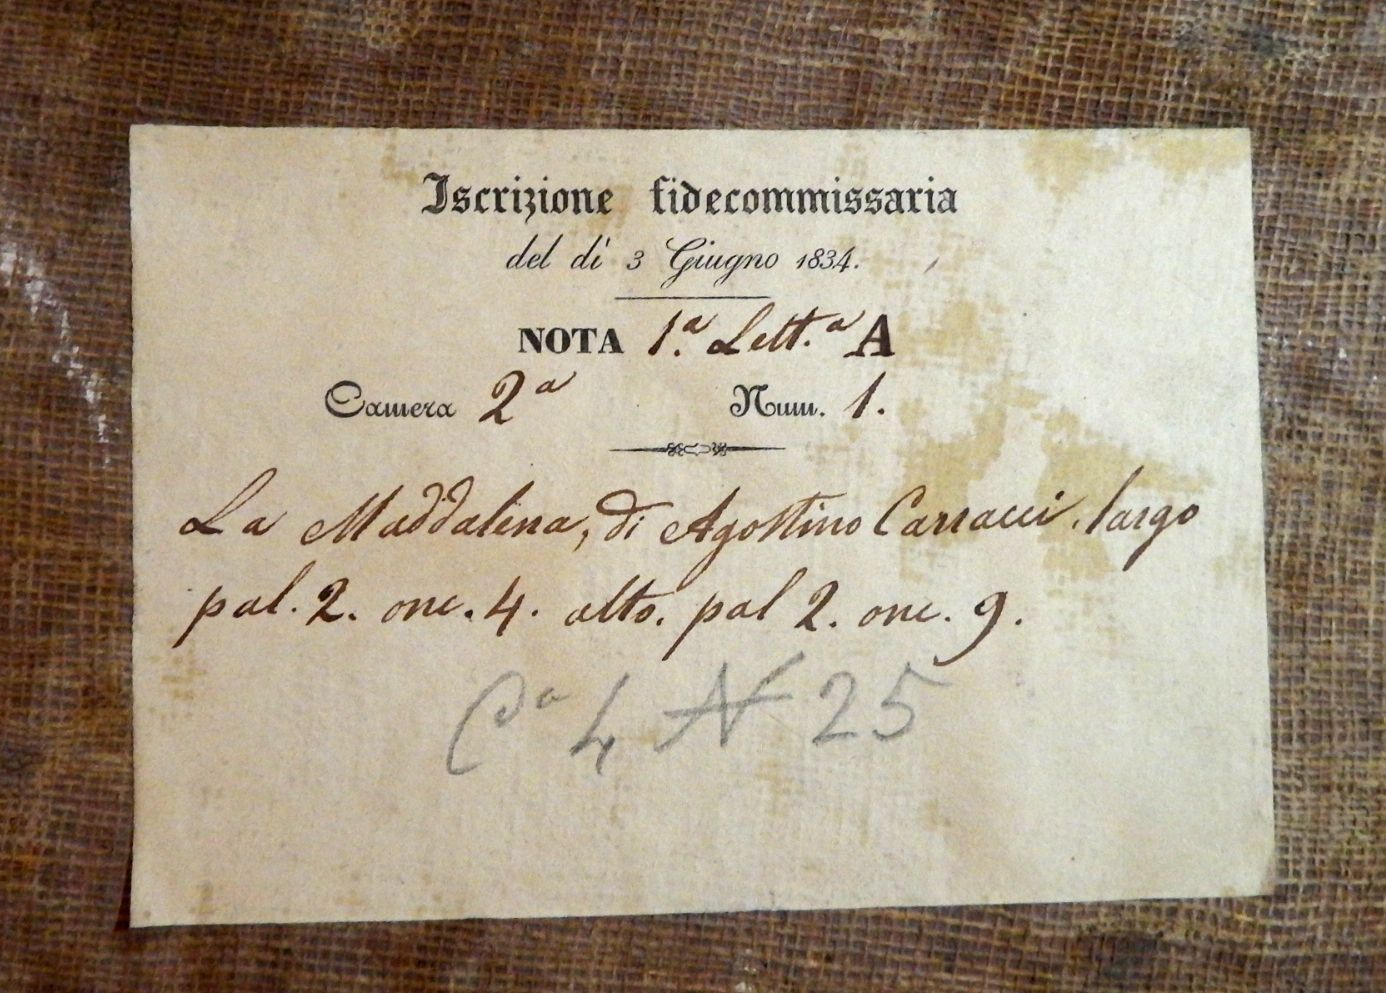 Iscrizione fidecommissaria
del dì 3 Giugno 1834.
NOTA 1.ª Lett.ª A
Camera 2ª Num. 1.
La Maddalena, di Agostino Carracci. largo
pal. 2. onc. 4. alto. pal 2. onc. 9.
Cª 4 N 25